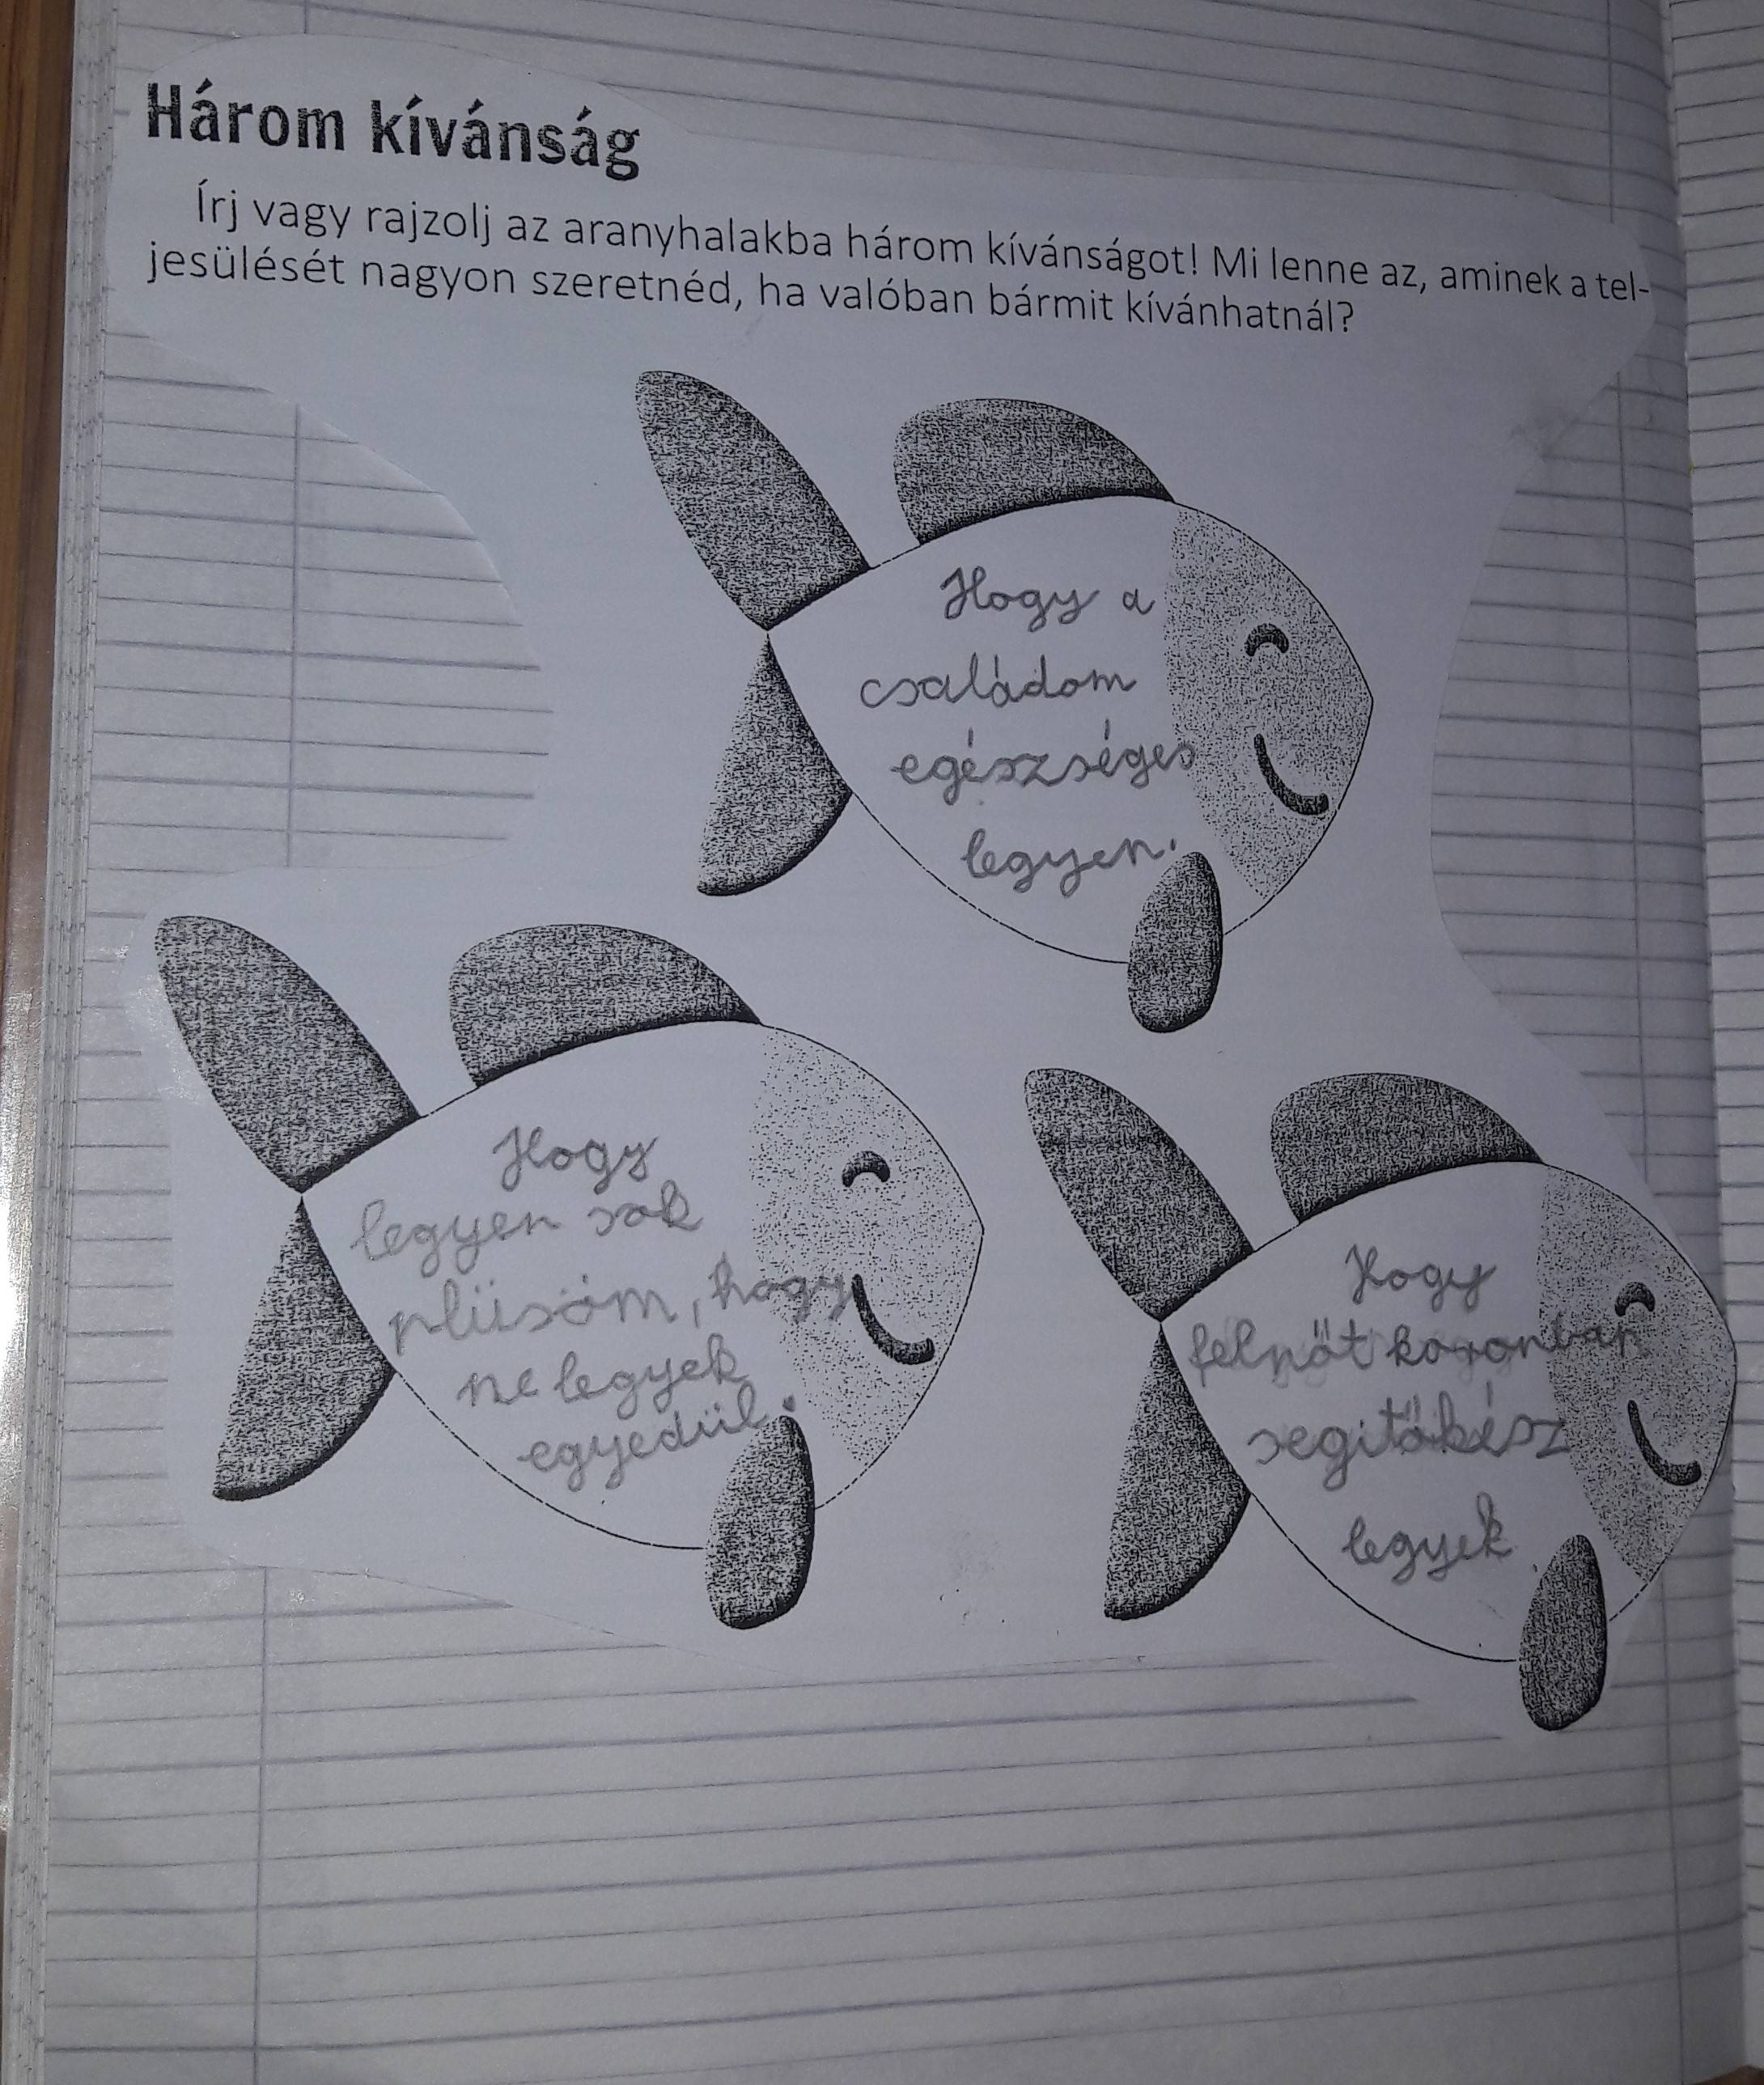 Három kívánság
Írj vagy rajzolj az aranyhalakba három kívánságot! Mi lenne az, aminek a tel-
jesülését nagyon szeretnéd, ha valóban bármit kívánhatnál?
Hogy a
családom
egészséges
legyen.
Hogy
legyen sok
plüsöm, hogy
ne legyek
egyedül.
Hogy
felnőt koromban
segitőkész
legyek